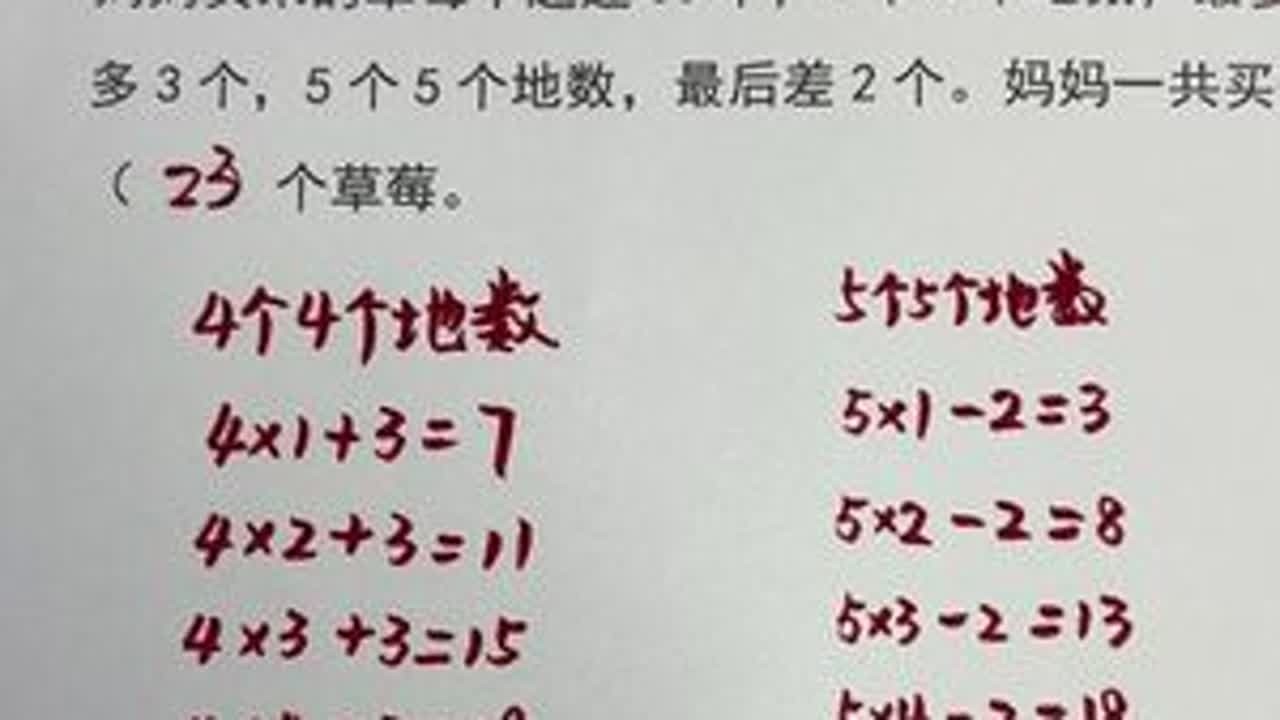 多3个，5个5个地数，最后差2个。妈妈一共买
（ 23 个草莓。
4个4个地数
5个5个地数
4×1+3=7
5×1-2=3
4×2+3=11
5×2-2=8
4×3+3=15
5×3-2=13
5×4-2=18